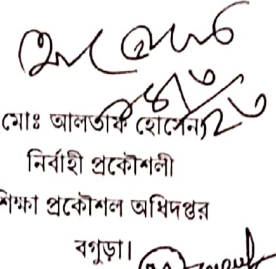 মোঃ আলতাফ হোসেন
নির্বাহী প্রকৌশলী
শিক্ষা প্রকৌশল অধিদপ্তর
বগুড়া।